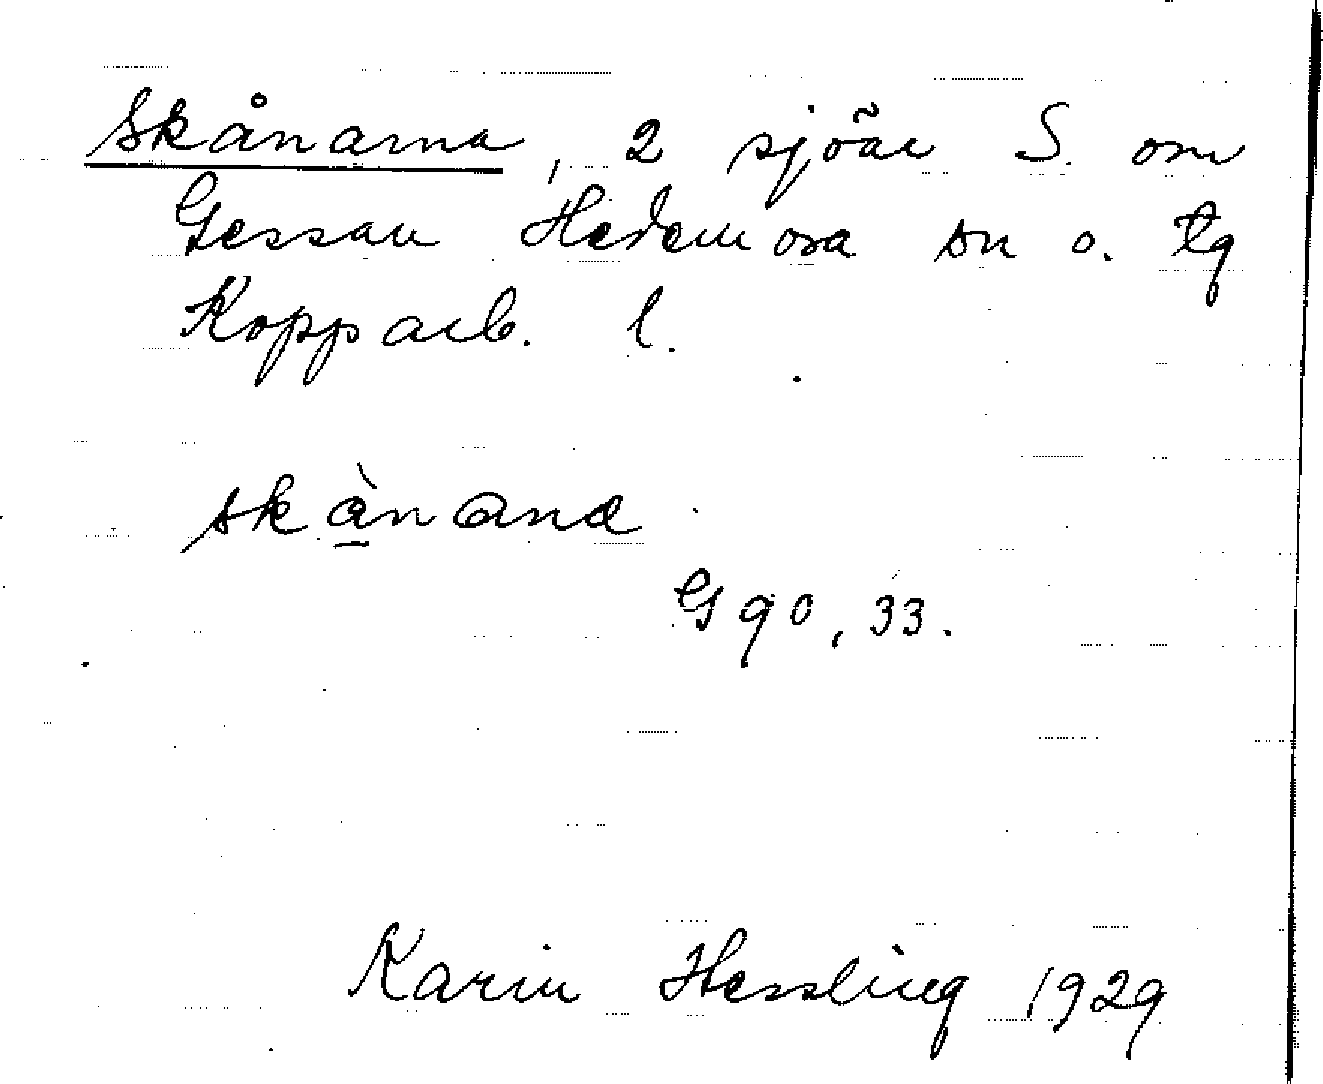 Skånarna, 2 sjöar S. om
Gessan Hedemora sn o. tg
Kopparb. l.
skä̀nana
G 90, 33.
Karin Hessling 1929